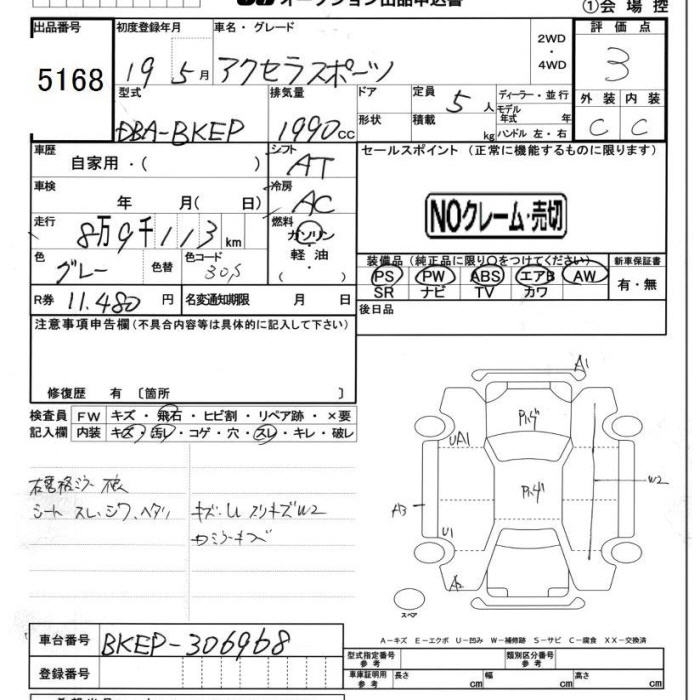 オークション出品申込書
①会場控
出品番号 初度登録年月 車名・グレード 2WD・4WD 評価点
5168 19 5月 アクセラスポーツ 3
型式 排気量 ドア形状 定員 5 人 積載 kg ディーラー・並行 モデル年式 年 ハンドル 左・右 外装 内装
DBA-BKEP 1990cc C C
車歴 自家用・( ) シフト AT セールスポイント（正常に機能するものに限ります）
車検 年 月( 日) 冷房 AC
NOクレーム・売切
走行 8万9千113 km 燃料 ガソリン・軽油・( )
色 グレー 色替 色コード 30S
装備品（純正品に限り○をつけてください） 新車保証書
PS PW ABS エアB AW 有・無
SR ナビ TV カワ
R券 11,480 円 名変通知期限 月 日 後日品
注意事項申告欄（不具合内容等は具体的に記入して下さい）
修復歴 有 〔箇所 〕
検査員記入欄 FW キズ・飛石・ヒビ割・リペア跡・×要
内装 キズ・汚レ・コゲ・穴・スレ・キレ・破レ
シート スレ、シワ、ヘタリ
A1
UA1
W2
A3
U1
A2
スペア
A－キズ E－エクボ U－凹み W－補修跡 S－サビ C－腐食 XX－交換済
車台番号 BKEP-306968
型式指定番号 参考 類別区分番号 参考
登録番号 車庫証明用 参考 長さ cm 幅 cm 高さ cm